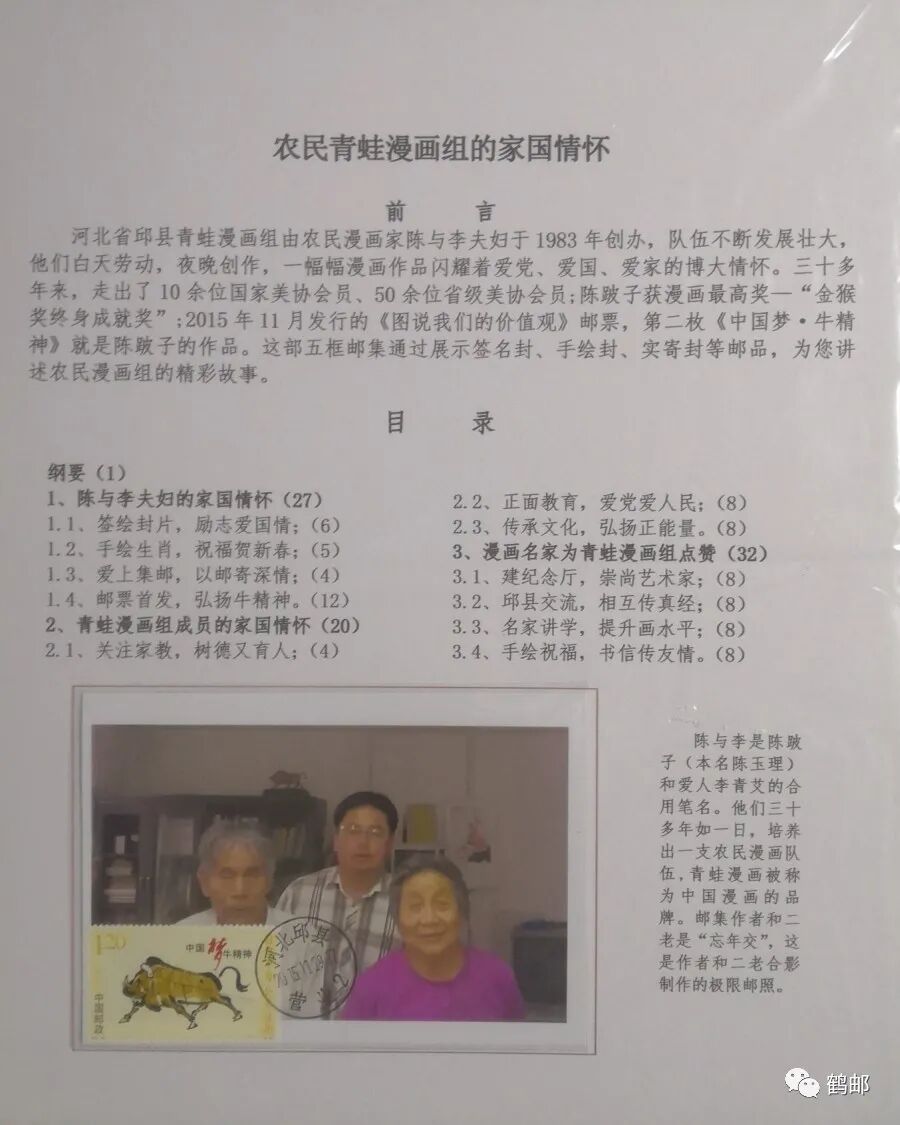 农民青蛙漫画组的家国情怀
前 言
河北省邱县青蛙漫画组由农民漫画家陈与李夫妇于1983年创办，队伍不断发展壮大，
他们白天劳动，夜晚创作，一幅幅漫画作品闪耀着爱党、爱国、爱家的博大情怀。三十多
年来，走出了10余位国家美协会员、50余位省级美协会员；陈跛子获漫画最高奖—“金猴
奖终身成就奖”；2015年11月发行的《图说我们的价值观》邮票，第二枚《中国梦·牛精
神》就是陈跛子的作品。这部五框邮集通过展示签名封、手绘封、实寄封等邮品，为您讲
述农民漫画组的精彩故事。
目 录
纲要（1）
1、陈与李夫妇的家国情怀（27）
1.1、签绘封片，励志爱国情；（6）
1.2、手绘生肖，祝福贺新春；（5）
1.3、爱上集邮，以邮寄深情；（4）
1.4、邮票首发，弘扬牛精神。（12）
2、青蛙漫画组成员的家国情怀（20）
2.1、关注家教，树德又育人；（4）
2.2、正面教育，爱党爱人民；（8）
2.3、传承文化，弘扬正能量。（8）
3、漫画名家为青蛙漫画组点赞（32）
3.1、建纪念厅，崇尚艺术家；（8）
3.2、邱县交流，相互传真经；（8）
3.3、名家讲学，提升画水平；（8）
3.4、手绘祝福，书信传友情。（8）
陈与李是陈跛
子（本名陈玉理）
和爱人李青艾的合
用笔名。他们三十
多年如一日，培养
出一支农民漫画队
伍，青蛙漫画被称
为中国漫画的品
牌。邮集作者和二
老是“忘年交”，这
是作者和二老合影
制作的极限邮照。
1.20
中国梦牛精神
中国邮政
河北邱县
鹤邮